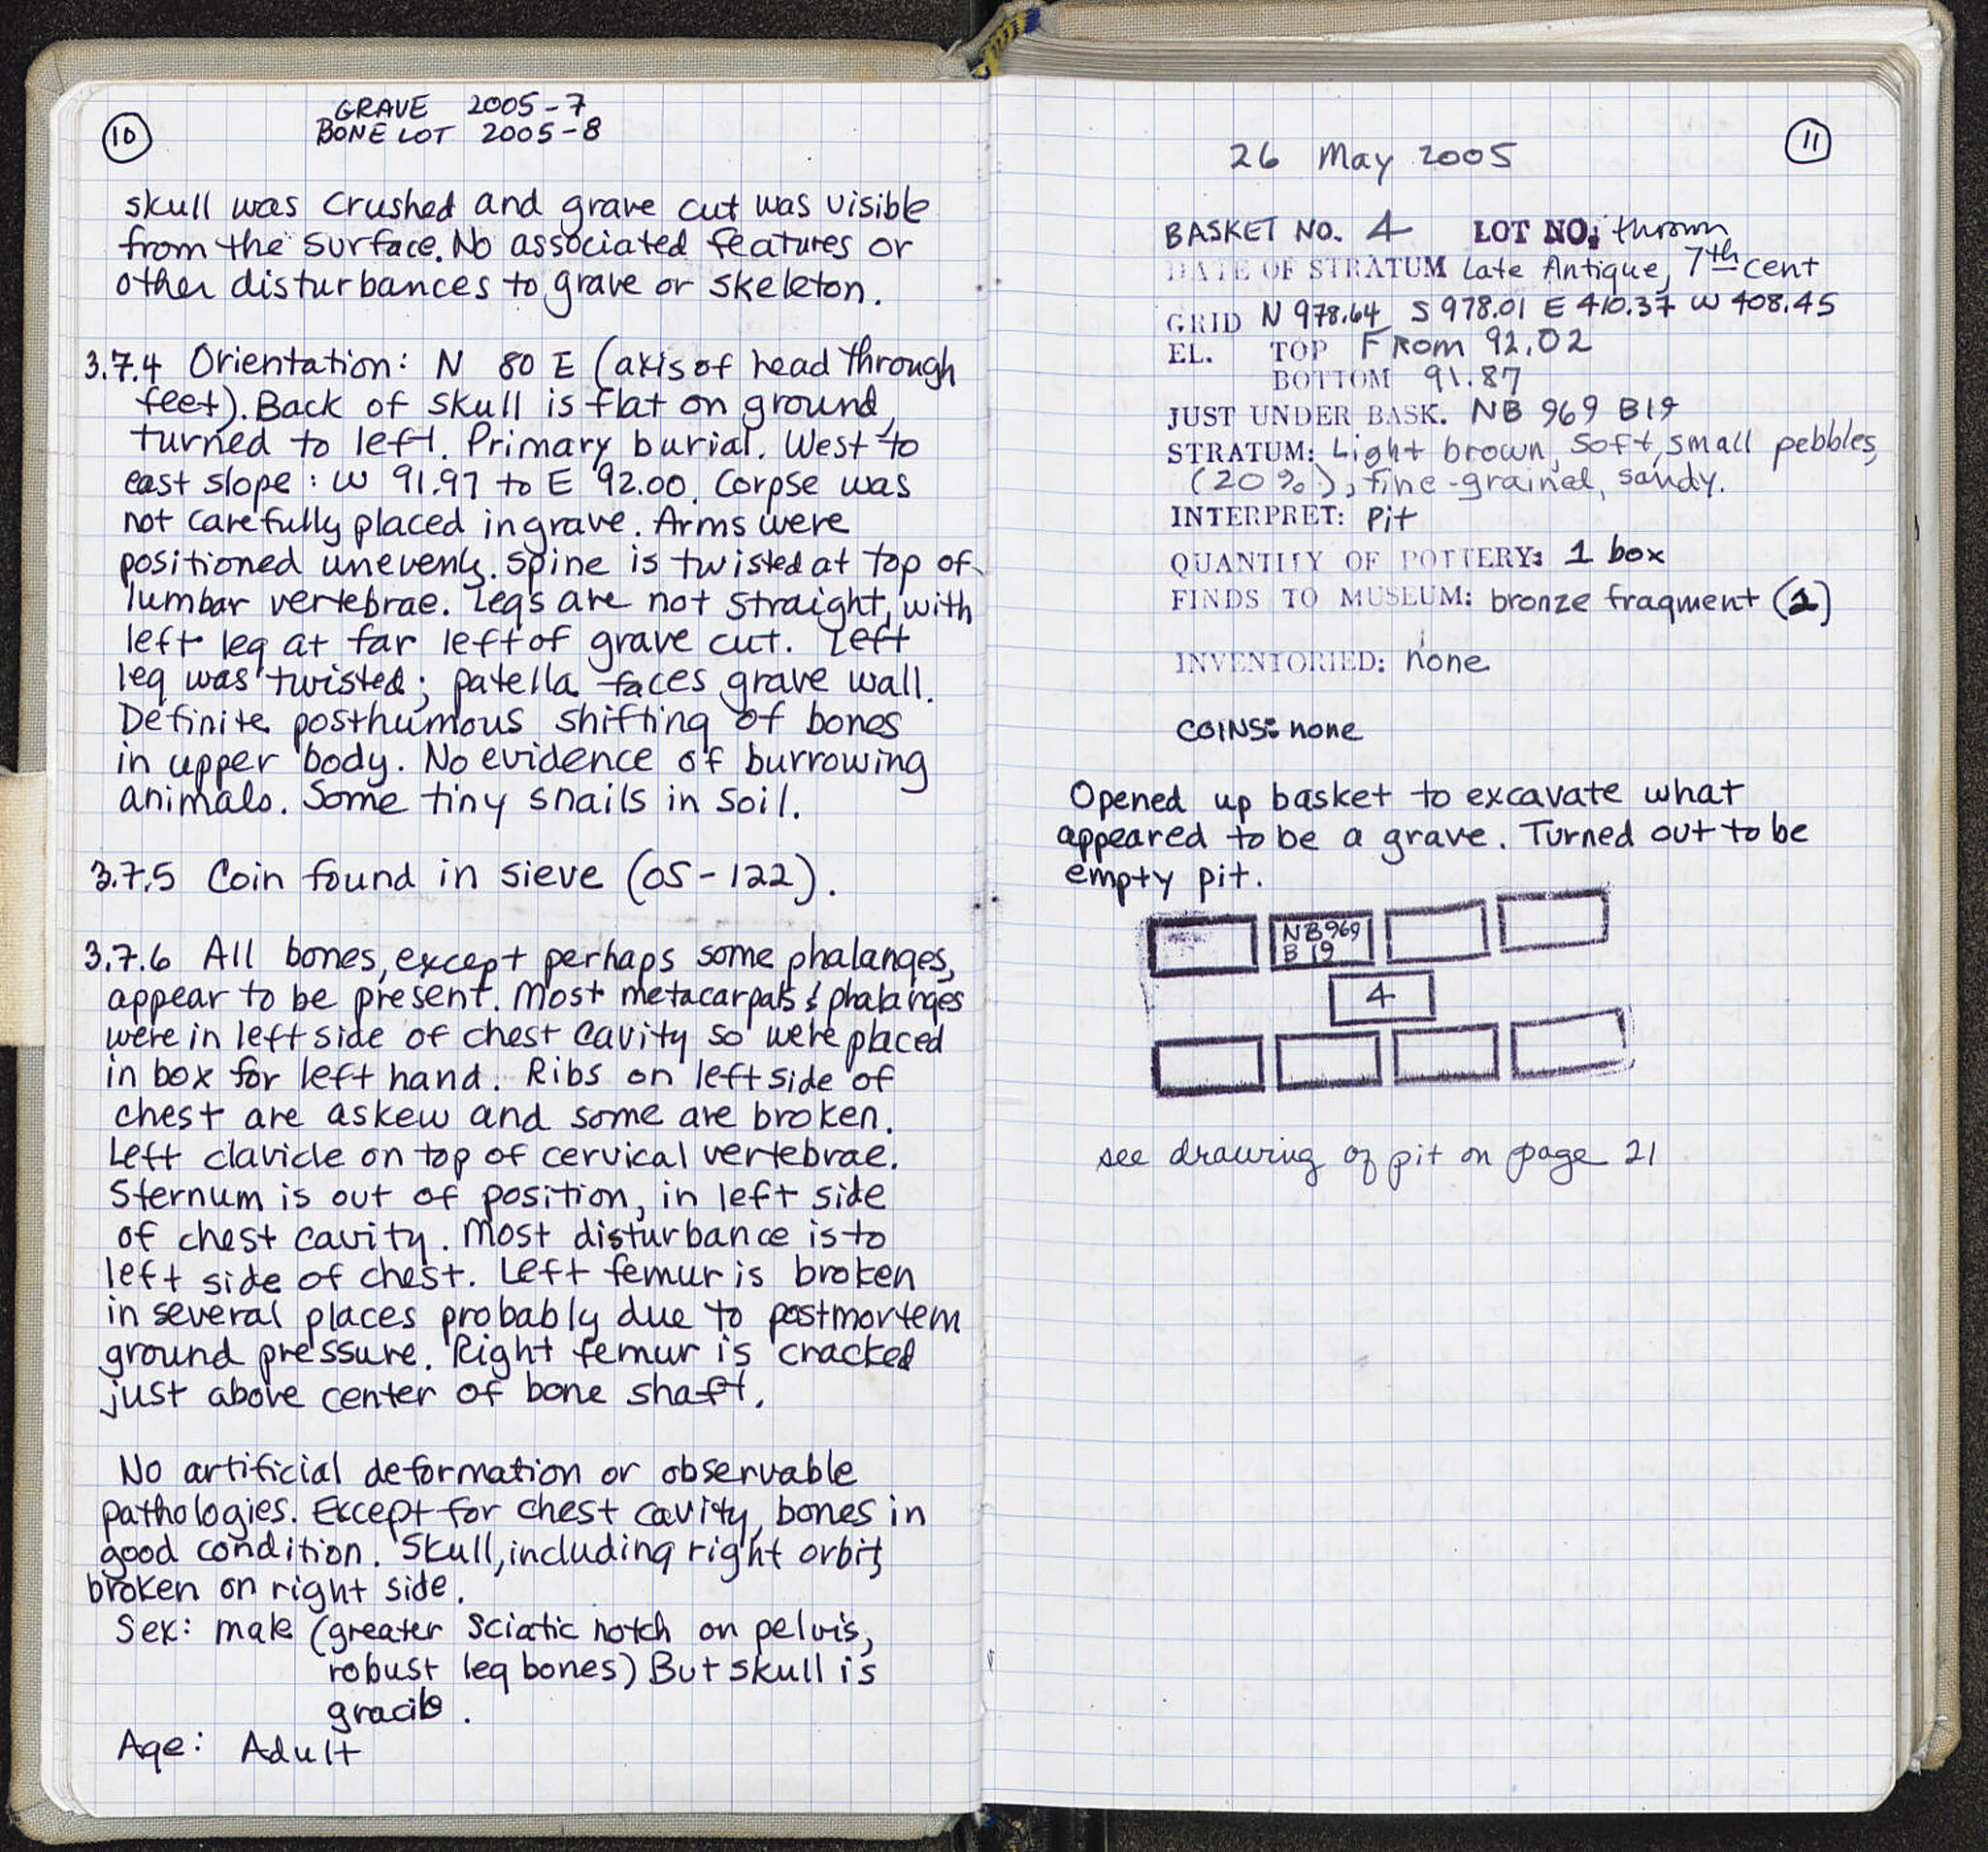 10
GRAVE 2005-7
BONE LOT 2005-8
skull was crushed and grave cut was visible
from the surface. No associated features or
other disturbances to grave or skeleton.
3.7.4 Orientation: N 80 E (axis of head through
feet). Back of skull is flat on ground,
turned to left. Primary burial. West to
east slope: W 91.97 to E 92.00. Corpse was
not carefully placed in grave. Arms were
positioned unevenly. Spine is twisted at top of
lumbar vertebrae. Legs are not straight, with
left leg at far left of grave cut. Left
leg was twisted; patella faces grave wall.
Definite posthumous shifting of bones
in upper body. No evidence of burrowing
animals. Some tiny snails in soil.
3.7.5 Coin found in sieve (05-122).
3.7.6 All bones, except perhaps some phalanges,
appear to be present. Most metacarpals & phalanges
were in left side of chest cavity so were placed
in box for left hand. Ribs on left side of
chest are askew and some are broken.
Left clavicle on top of cervical vertebrae.
Sternum is out of position, in left side
of chest cavity. Most disturbance is to
left side of chest. Left femur is broken
in several places probably due to postmortem
ground pressure. Right femur is cracked
just above center of bone shaft.
No artificial deformation or observable
pathologies. Except for chest cavity, bones in
good condition. Skull, including right orbit,
broken on right side.
Sex: male (greater sciatic notch on pelvis,
robust leg bones) But skull is
gracile.
Age: Adult
11
26 May 2005
BASKET NO. 4 LOT NO: thrown
DATE OF STRATUM Late Antique, 7th cent
GRID N 978.64 S 978.01 E 410.37 W 408.45
EL. TOP FROM 92.02
BOTTOM 91.87
JUST UNDER BASK. NB 969 B19
STRATUM: Light brown, soft, small pebbles,
(20%), fine-grained, sandy.
INTERPRET: pit
QUANTITY OF POTTERY: 1 box
FINDS TO MUSEUM: bronze fragment (1)
INVENTORIED: none
COINS: none
Opened up basket to excavate what
appeared to be a grave. Turned out to be
empty pit.
NB 969
B 19
4
see drawing of pit on page 21